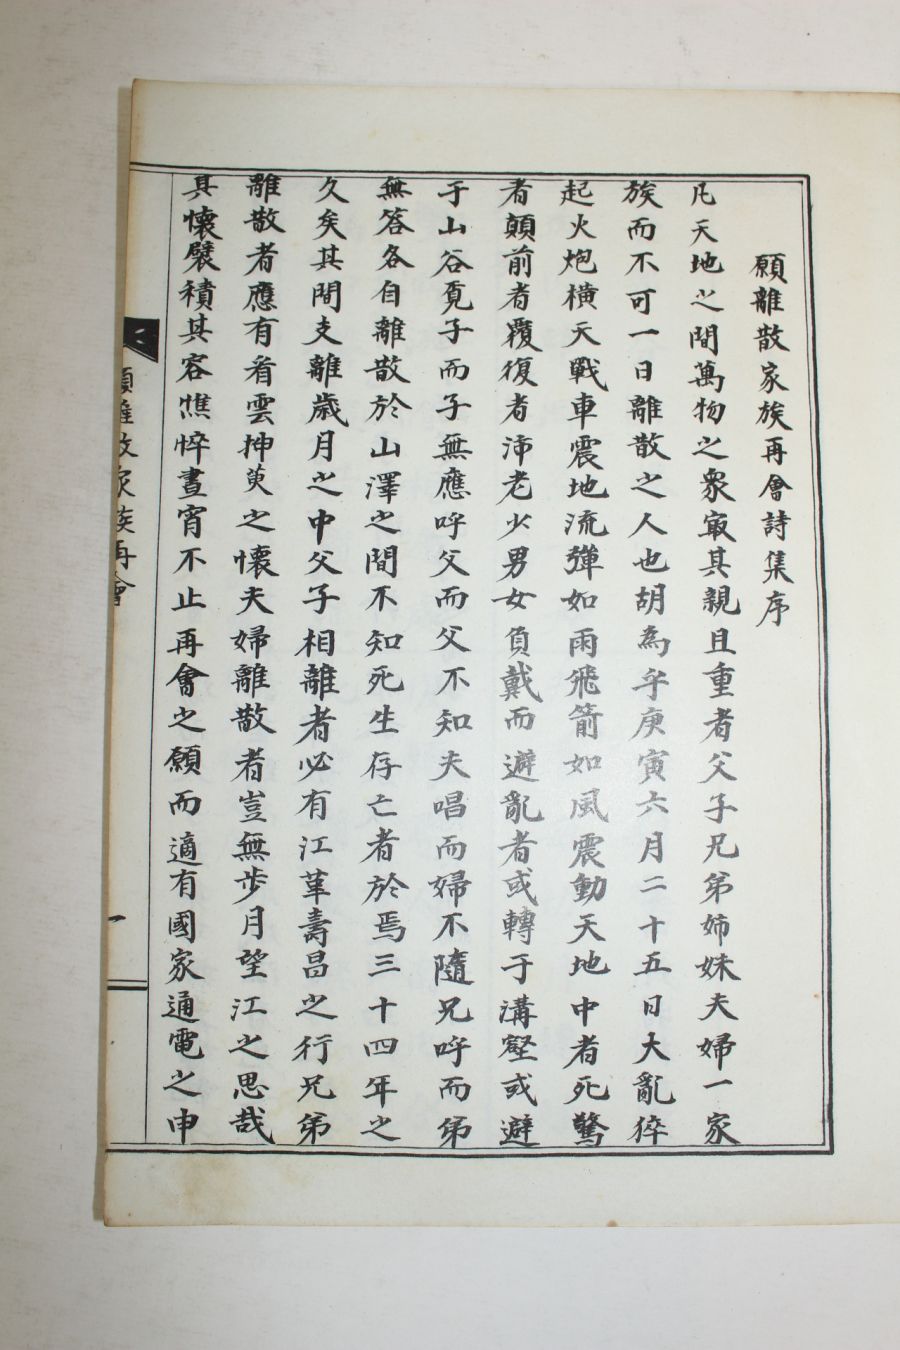 願離散家族再會詩集序
凡天地之間萬物之衆㝡其親且重者父子兄弟姉妹夫婦一家
族而不可一日離散之人也胡爲乎庚寅六月二十五日大亂猝
起火炮橫天戰車震地流彈如雨飛箭如風震動天地中者死驚
者顚前者覆復者沛老少男女負戴而避亂者或轉于溝壑或避
于山谷覓子而子無應呼父而父不知夫唱而婦不隨兄呼而弟
無答各自離散於山澤之間不知死生存亡者於焉三十四年之
久矣其間支離歲月之中父子相離者必有江革壽昌之行兄弟
離散者應有看雲抻萸之懷夫婦離散者豈無步月望江之思哉
具懷襞積其容憔悴晝宵不止再會之願而適有國家通電之申
願離散家族再會
一